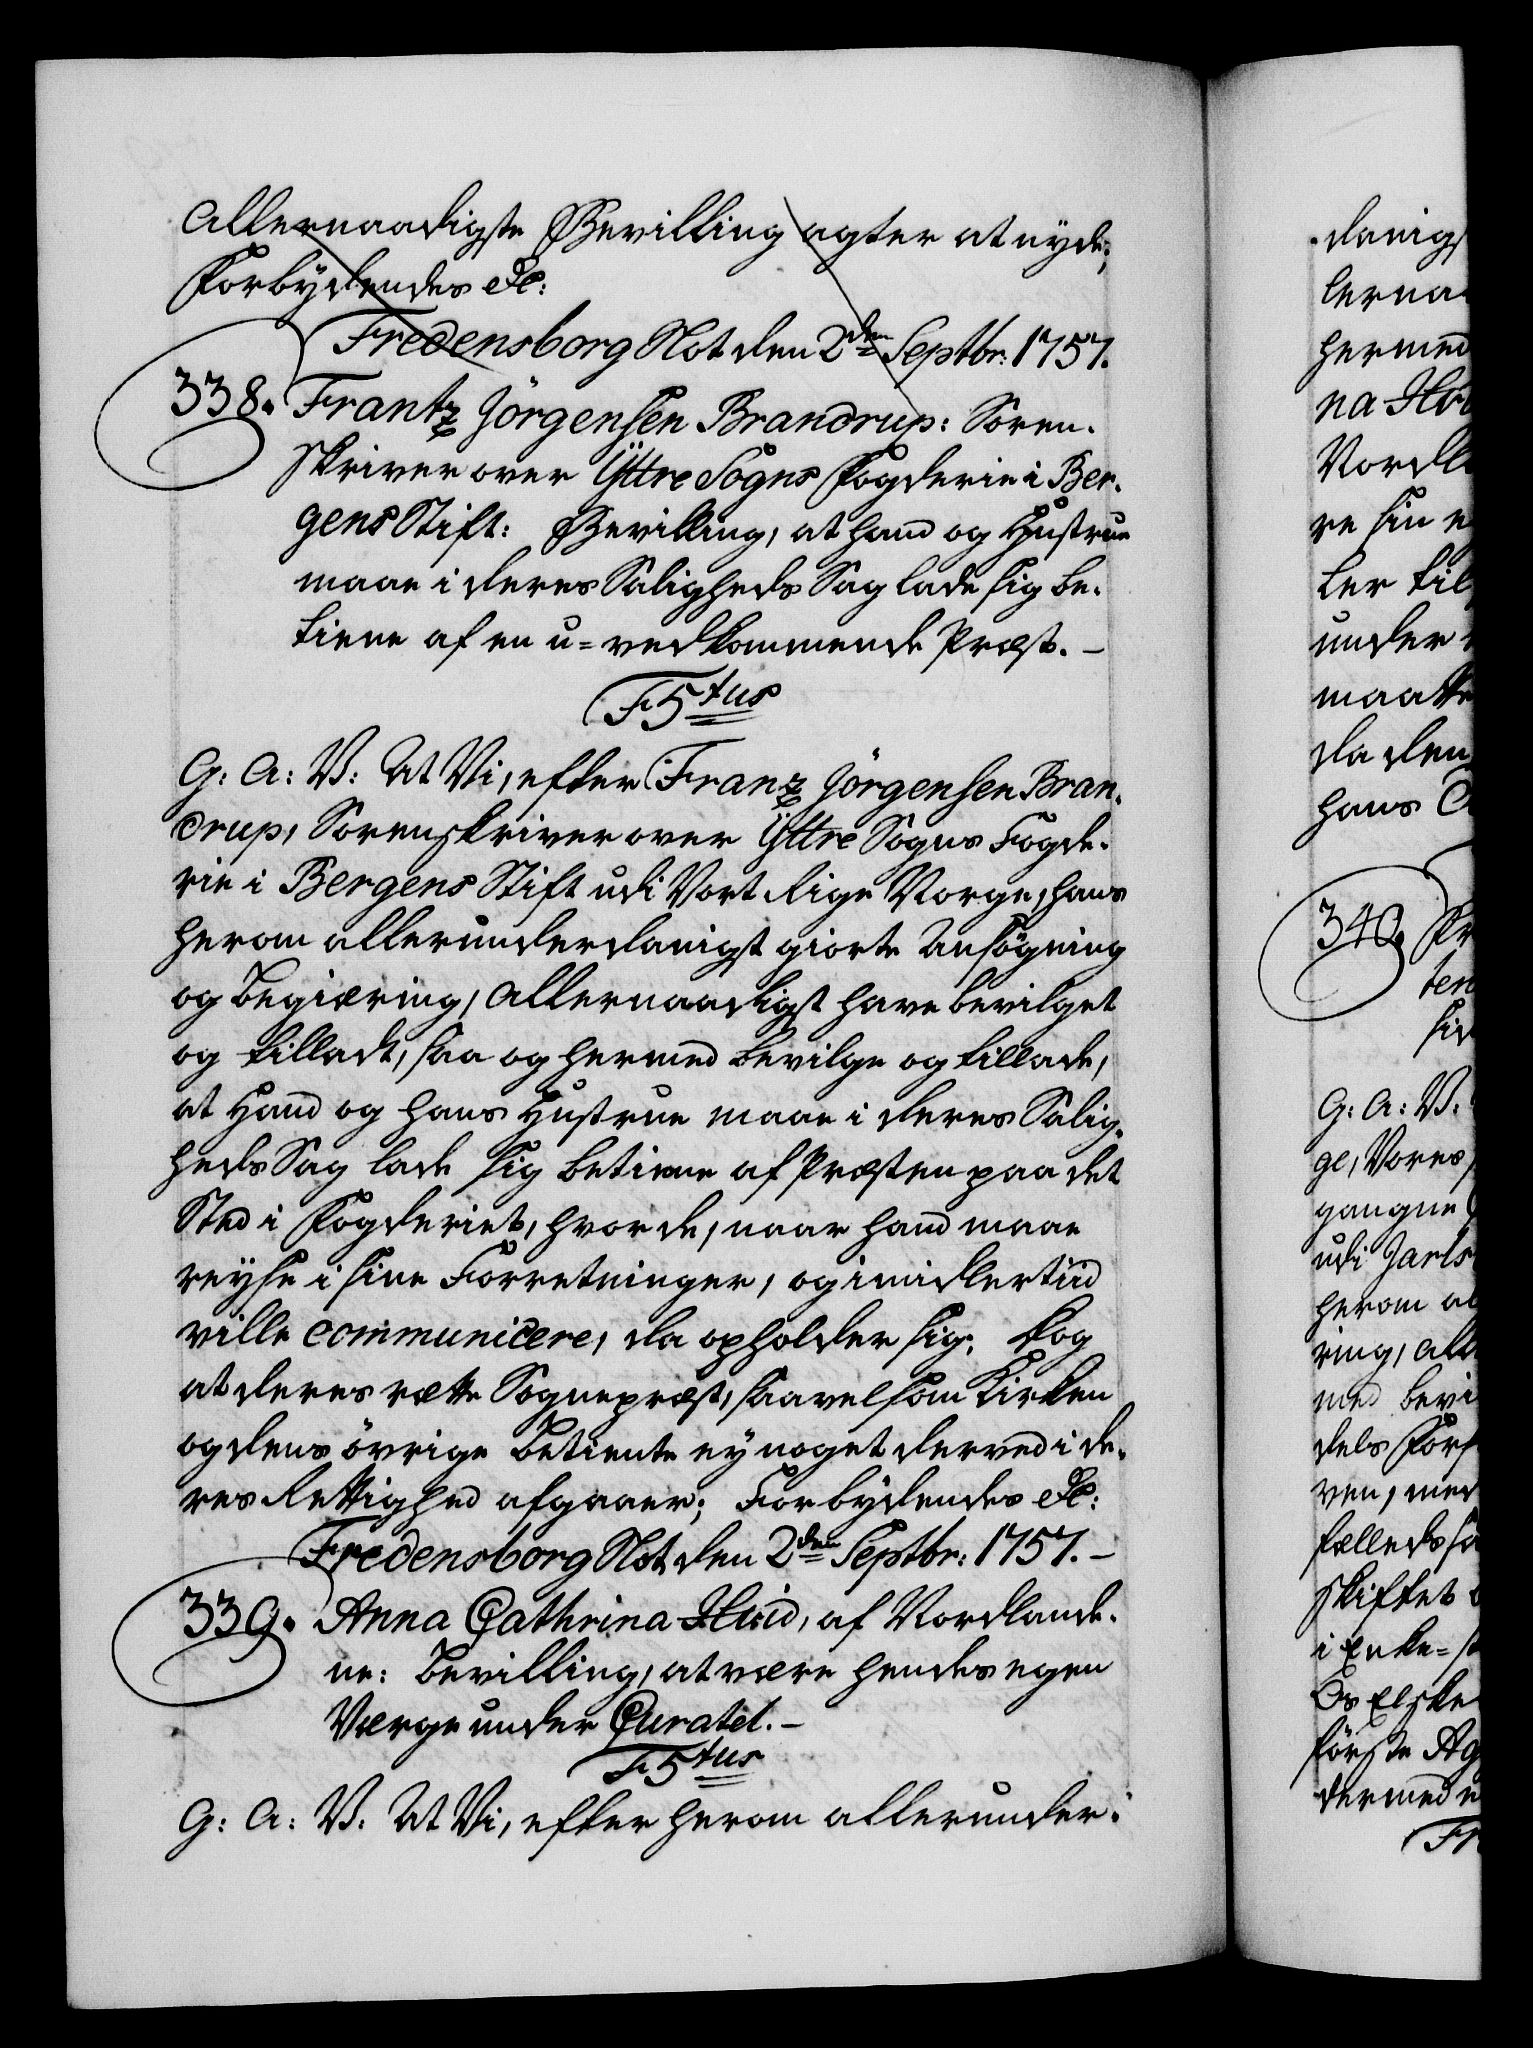 Allernaadigste Bevilling agter at nyde;
Forbydendes &c:
Fredensborg Slot den 2den Septbr: 1757.
338. Frantz Jörgensen Brandrup: Soren-
skriver over Yttre Sogns Fogderie i Ber-
gens Stift: Bevilling, at hand og Hustrue
maae i deres Saligheds Sag lade sig be-
tiene af en u-vedkommende Præst. -
F 5tus
G: A: V: At Vi, efter Franz Jörgensen Bran-
drup, Sorenskriver over Yttre Sogns Fogde-
rie i Bergens Stift udi Vort Rige Norge, hans
herom allerunderdanigst giorte Ansögning
og Begiæring, allernaadigst have bevilget
og tilladt, saa og hermed bevilge og tillade,
at Hand og hans Hustrue maae i deres Salig-
heds Sag lade sig betiene af Præsten paa det
Sted i Fogderiet, hvor de, naar hand maae
reyse i sine Forretninger, og imidlertiid
ville communicere, da opholder sig; Dog
at deres rette Sognepræst, saavelsom Kirken
og dens övrige Betiente ey noget derved i de-
res Rettighed afgaaer; Forbydendes &c:
Fredensborg Slot den 2den Septbr: 1757. -
339. Anna Cathrina Huid, af Nordlande-
ne: Bevilling, at være hendes egen
Værge under Curatel. -
F 5tus
G: A: V: At Vi, efter herom allerunder-
danigs
lerna
hermed
na
Nordl
re sin e
ler til
under
maatte
da den
hans C
340.
ten
sid
G: A: V:
ge, Vores
gangne
udi Jarls
herom al
ring, all
med bevi
dels For
ven, med
fælleds
skiftet
i Enke-
Os Elske
förste Ag
dermed
Fr